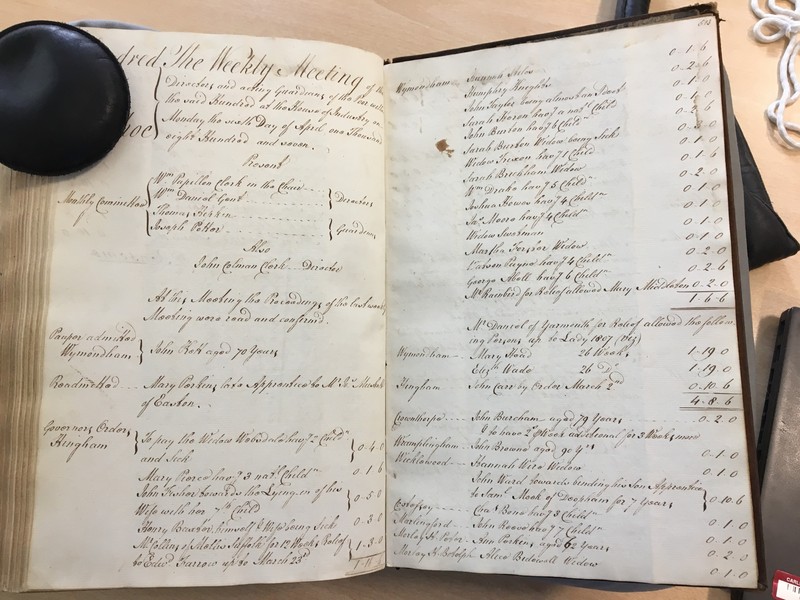 dred The Weekly Meeting of the
Directors and acting Guardians of the Poor with
the said Hundred at the House of Industry on
hoe
Monday the sixth Day of April one Thousand
eight Hundred and seven.
Present
Monthly Committee
Wm Papillon Clerk in the Chair
Wm Daniel Gent
Directors
Thomas
Joseph Potter
Guardians
Also
John Colman Clerk Director
At this Meeting the Proceedings of the last week
Meeting were read and confirmed.
Pauper admitted
Wymondham
John aged 70 Years
Readmitted Mary Perkins late Apprentice to Mr
of Easton.
Governors Orders
Hingham
To pay the Widow havg 2 Childn
and Sick
0-4-0
Mary Pearce havg 3 natl Childn 0-1-6
John Fisher towards the Lying in of his
Wife with her 7th Child
0-5-0
Henry Baxter himself & Wife being Sick 0-3-0
Mr of Mellis Suffolk for 12 Weeks Relief
to Edwd Farrow up to March 23d
1-3-0
Wymondham Susannah 0-1-6
Humphry Knights 0-2-6
John Taylor being almost an Idiot 0-1-0
Sarah Moron havg a natl Child
John Burton havg 6 Childn
Sarah Burton Widow being Sick
Widow havg 1 Child 0-1-0
Sarah Buckham Widow 0-1-6
Wm Drake havg 5 Childn 0-2-0
Joshua Howes havg 4 Childn 0-1-0
Thos Moore havg 4 Childn 0-1-0
Widow Swetman 0-1-0
Martha Widow 0-1-0
Payne havg 4 Childn 0-2-0
George Abell havg 6 Childn 0-2-6
Mr Rainbird for Relief allowed Mary Middleton 0-2-0
1-6-6
Mr Daniel of Yarmouth for Relief allowed the follow,
ing Persons up to Lady 1807 (Viz)
Wymondham Mary 26 Weeks 1-19-0
Elizth Wade 26 Do 1-19-0
Hingham John Carr by Order March 2nd 0-10-6
4-8-6
Crownthorpe John Burcham aged 79 Years 0-2-0
& to have 2s Week additional for 3 Weeks more
Wramplingham John Browne aged 90 Yrs 0-1-0
Wicklewood Hannah Wire Widow 0-1-0
John Ward towards binding his Son Apprentice
to Saml Mook of Deopham for 7 Years
0-10-6
Costessey Chas Bone havg 3 Childn 0-1-0
Marlingford John Reeve havg 7 Childn 0-1-0
Morley St Peter Ann Perkins aged 62 Years 0-2-0
Morley St Botolph Alice Bidewell Widow 0-1-0